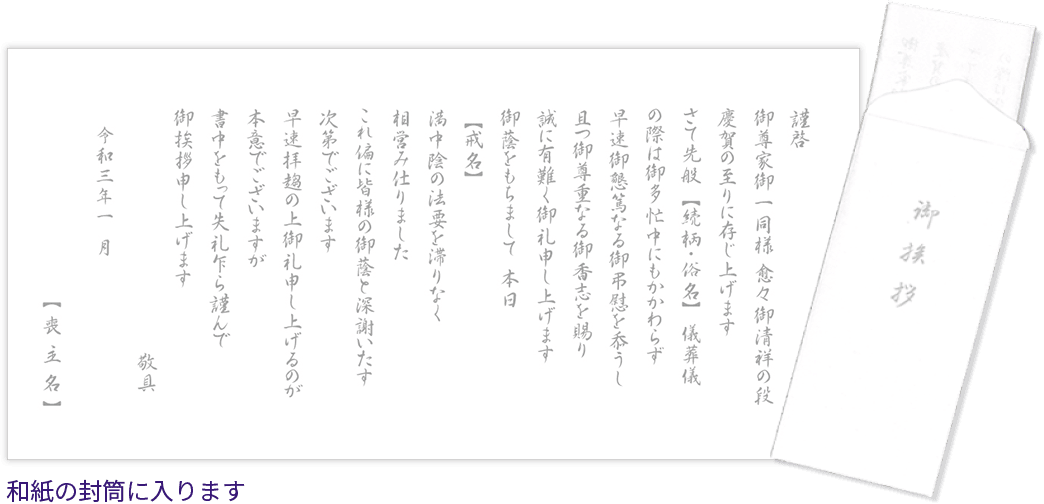 謹啓
御尊家御一同様 愈々御清祥の段
慶賀の至りに存じ上げます
さて先般【続柄・俗名】儀葬儀
の際は御多忙中にもかかわらず
早速御懇篤なる御弔慰を忝うし
且つ御尊重なる御香志を賜り
誠に有難く御礼申し上げます
御蔭をもちまして 本日
【戒名】
満中陰の法要を滞りなく
相営み仕りました
これ偏に皆様の御蔭と深謝いたす
次第でございます
早速拝趨の上御礼申し上げるのが
本意でございますが
書中をもって失礼乍ら謹んで
御挨拶申し上げます
敬具
令和三年一月
【喪主名】
御挨拶
和紙の封筒に入ります